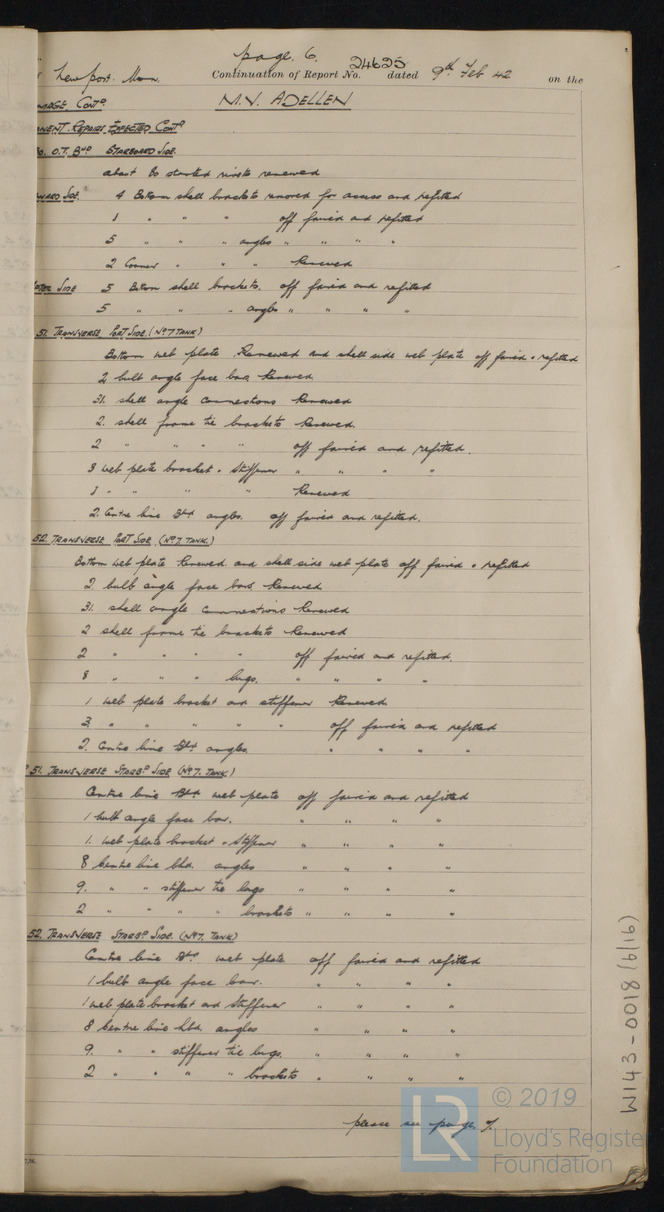 page. 6.
Newport. Mon. Continuation of Report No. 24625 dated 9th Feb 42 on the
MAGE Contd. M.V. ADELLEN
ANENT. REPAIRS EFFECTED CONTD
O.T. BHD STARBOARD SIDE.
about 60 started rivets renewed
WARD SIDE. 4 Bottom shell brackets removed for access and refitted
1 " " " off faired and refitted
5 " " " angles " " " "
2 Corner " " " Renewed
SIDE 5 Bottom shell brackets. off faired and refitted
5 " " " angles " " " "
51. TRANSVERSE PORT SIDE. (No 7 TANK)
Bottom web plate Renewed and shell side web plate off faired & refitted
2 bulb angle face bars Renewed
31. shell angle connections Renewed
2. shell frame tie brackets Renewed.
2 " " " " off faired and refitted.
3 web plate bracket & stiffener " " " "
1 " " " " Renewed
2. Centre line Bhd angles. off faired and refitted.
52. TRANSVERSE PORT SIDE (No 7. TANK.)
Bottom web plate Renewed and shell side web plate off faired & refitted
2 bulb angle face bars Renewed
31. shell angle connections Renewed
2 shell frame tie brackets Renewed
2 " " " " off faired and refitted.
8 " " " lugs. " " " "
1 web plate bracket and stiffener Renewed
3. " " " " " off faired and refitted
2. Centre line Bhd angles. " " " "
51. TRANSVERSE STARBD SIDE (No 7. TANK)
Centre line Bhd web plate off faired and refitted
1 bulb angle face bar. " " " "
1. web plate bracket & stiffener " " " "
8 Centre line bhd. angles " " " "
9. " " stiffener tie lugs " " " "
2 " " " " brackets " " " "
52. TRANSVERSE STARBD SIDE. (No 7. TANK)
Centre line Bhd web plate off faired and refitted
1 bulb angle face bar. " " " "
1 web plate bracket and stiffener " " " "
8 Centre line bhd. angles " " " "
9. " " stiffener tie lugs. " " " "
2 " " " " brackets " " " "
please see page 7.
W143-0018 (6/16)
© 2019
LR
Lloyd's Register
Foundation